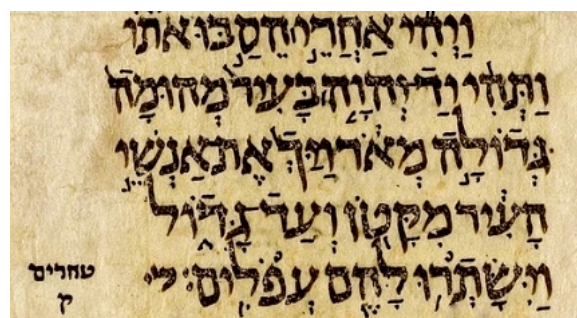 וַיְהִי אַחֲרֵי הֵסַבּוּ אֹתוֹ
וַתְּהִי יַד־יְהוָה בָּעִיר מְהוּמָה
גְּדוֹלָה מְאֹד וַיַּךְ אֶת־אַנְשֵׁי
הָעִיר מִקָּטֹן וְעַד־גָּדוֹל
וַיִּשָּׂתְרוּ לָהֶם עְפֹלִים׃
טחרים
ק